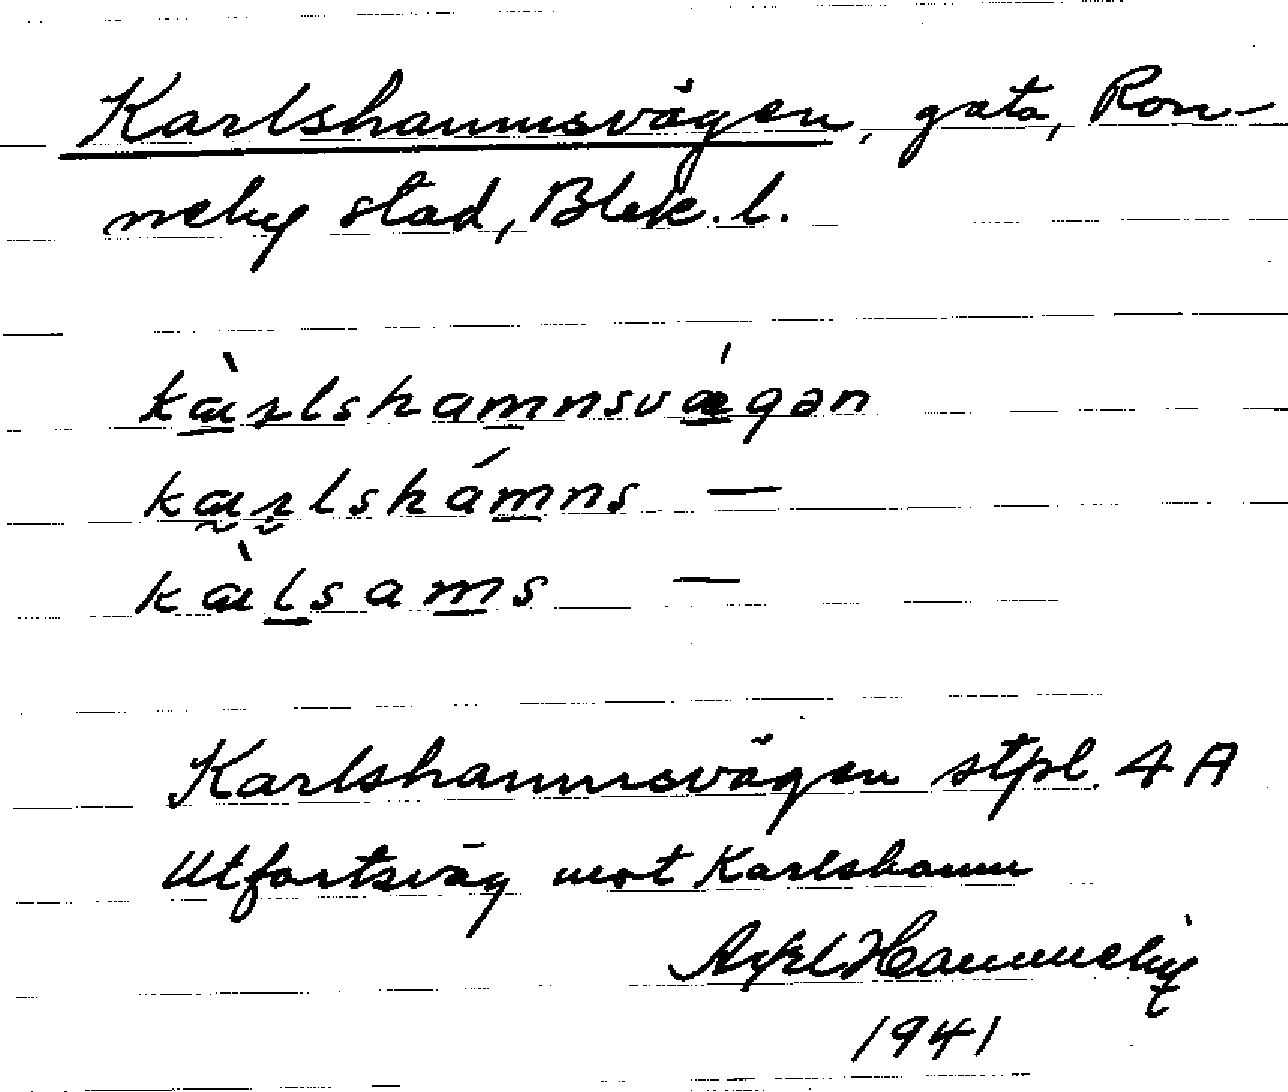 Karlshamnsvägen, gata, Ron-
neby stad,Blek. l.
kàrlshamnsvǽgən
karlshámns —
kàlsams —
Karlshamnsvägen stpl. 4 A
Utfartsväg mot Karlshamn
Axel Hammneby
1941